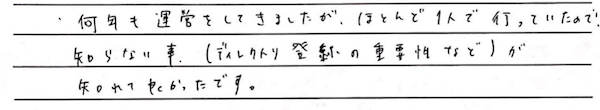 ・何年も運営をしてきましたが、ほとんど1人で行っていたので、
知らない事、(ディレクトリ登録の重要性など)が
知れてよかったです。